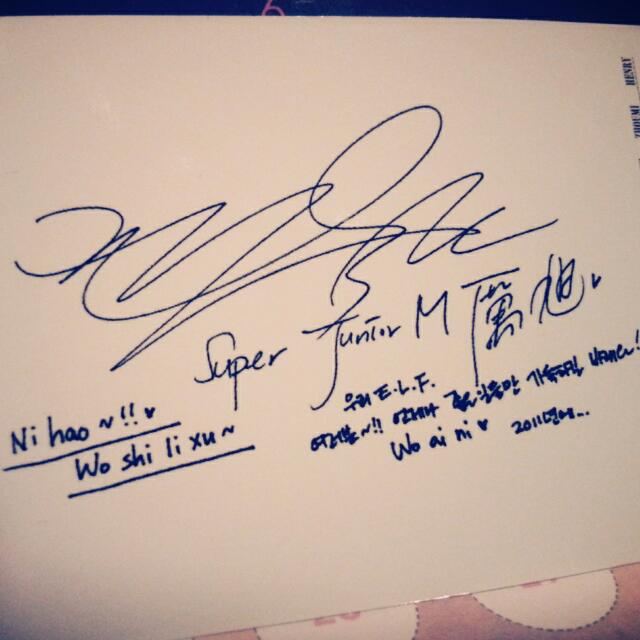 Super Junior M 厲旭
Ni hao ~!!
Wo shi li xu ~
우리 E.L.F.
여러분~!! 언제나 좋은 일들만 가득하길 바래요~!
Wo ai ni
2011년에...
ZHOUMI HENRY
6